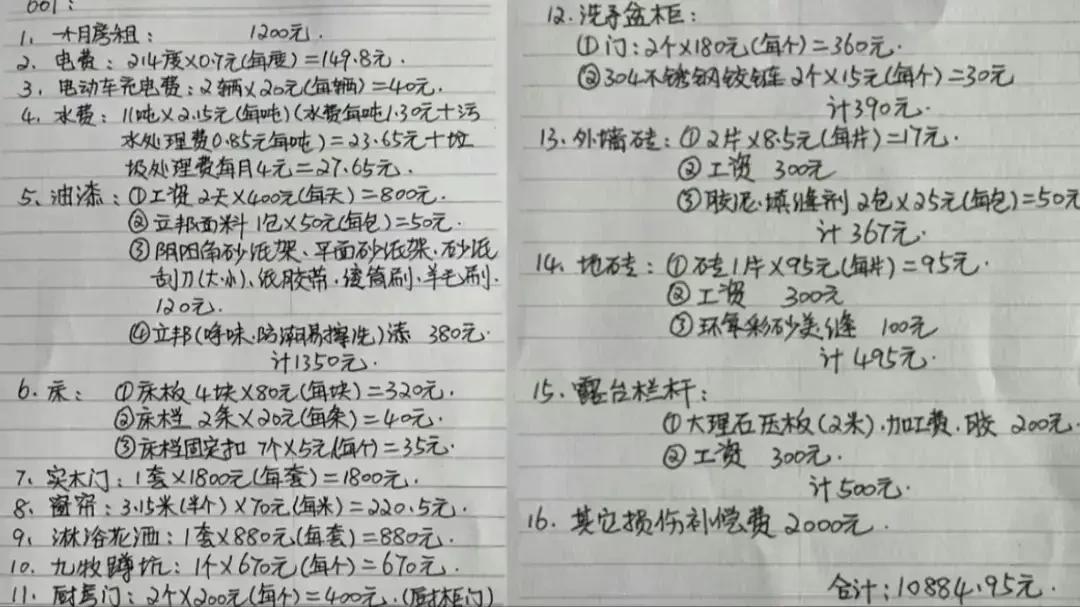 001:
1、一个月房租: 1200元.
2、电费: 214度×0.7元(每度)=149.8元.
3、电动车充电费: 2辆×20元(每辆)=40元.
4、水费: 11吨×2.15元(每吨)(水费每吨1.30元+污
水处理费0.85元每吨)=23.65元+垃
圾处理费每月4元=27.65元.
5、油漆: ①工资 2天×400元(每天)=800元.
②立邦面料 1包×50元(每包)=50元.
③阴阳角砂纸架、平面砂纸架、砂纸
刮刀(大.小)、纸胶带.滚筒刷.羊毛刷.
120元.
④立邦(净味.防潮易擦洗)漆 380元.
计1350元.
6、床: ①床板 4块×80元(每块)=320元.
②床档 2条×20元(每条)=40元.
③床档固定扣 7个×5元(每个)=35元.
7、实木门: 1套×1800元(每套)=1800元.
8、窗帘: 3.15米(半个)×70元(每米)=220.5元.
9、淋浴花洒: 1套×880元(每套)=880元.
10、九牧蹲坑: 1个×670元(每个)=670元.
11、厨房门: 2个×200元(每个)=400元.(厨柜门)
12、洗手盆柜:
①门: 2个×180元(每个)=360元.
②304不锈钢铰链 2个×15元(每个)=30元
计390元.
13、外墙砖: ①2片×8.5元(每片)=17元.
②工资 300元
③胶泥.填缝剂 2包×25元(每包)=50元
计367元.
14、地砖: ①砖1片×95元(每片)=95元.
②工资 300元
③环氧彩砂美缝 100元
计495元.
15、露台栏杆:
①大理石压板(2米).加工费.胶 200元.
②工资 300元.
计500元.
16、其它损伤补偿费 2000元.
合计: 10884.95元.